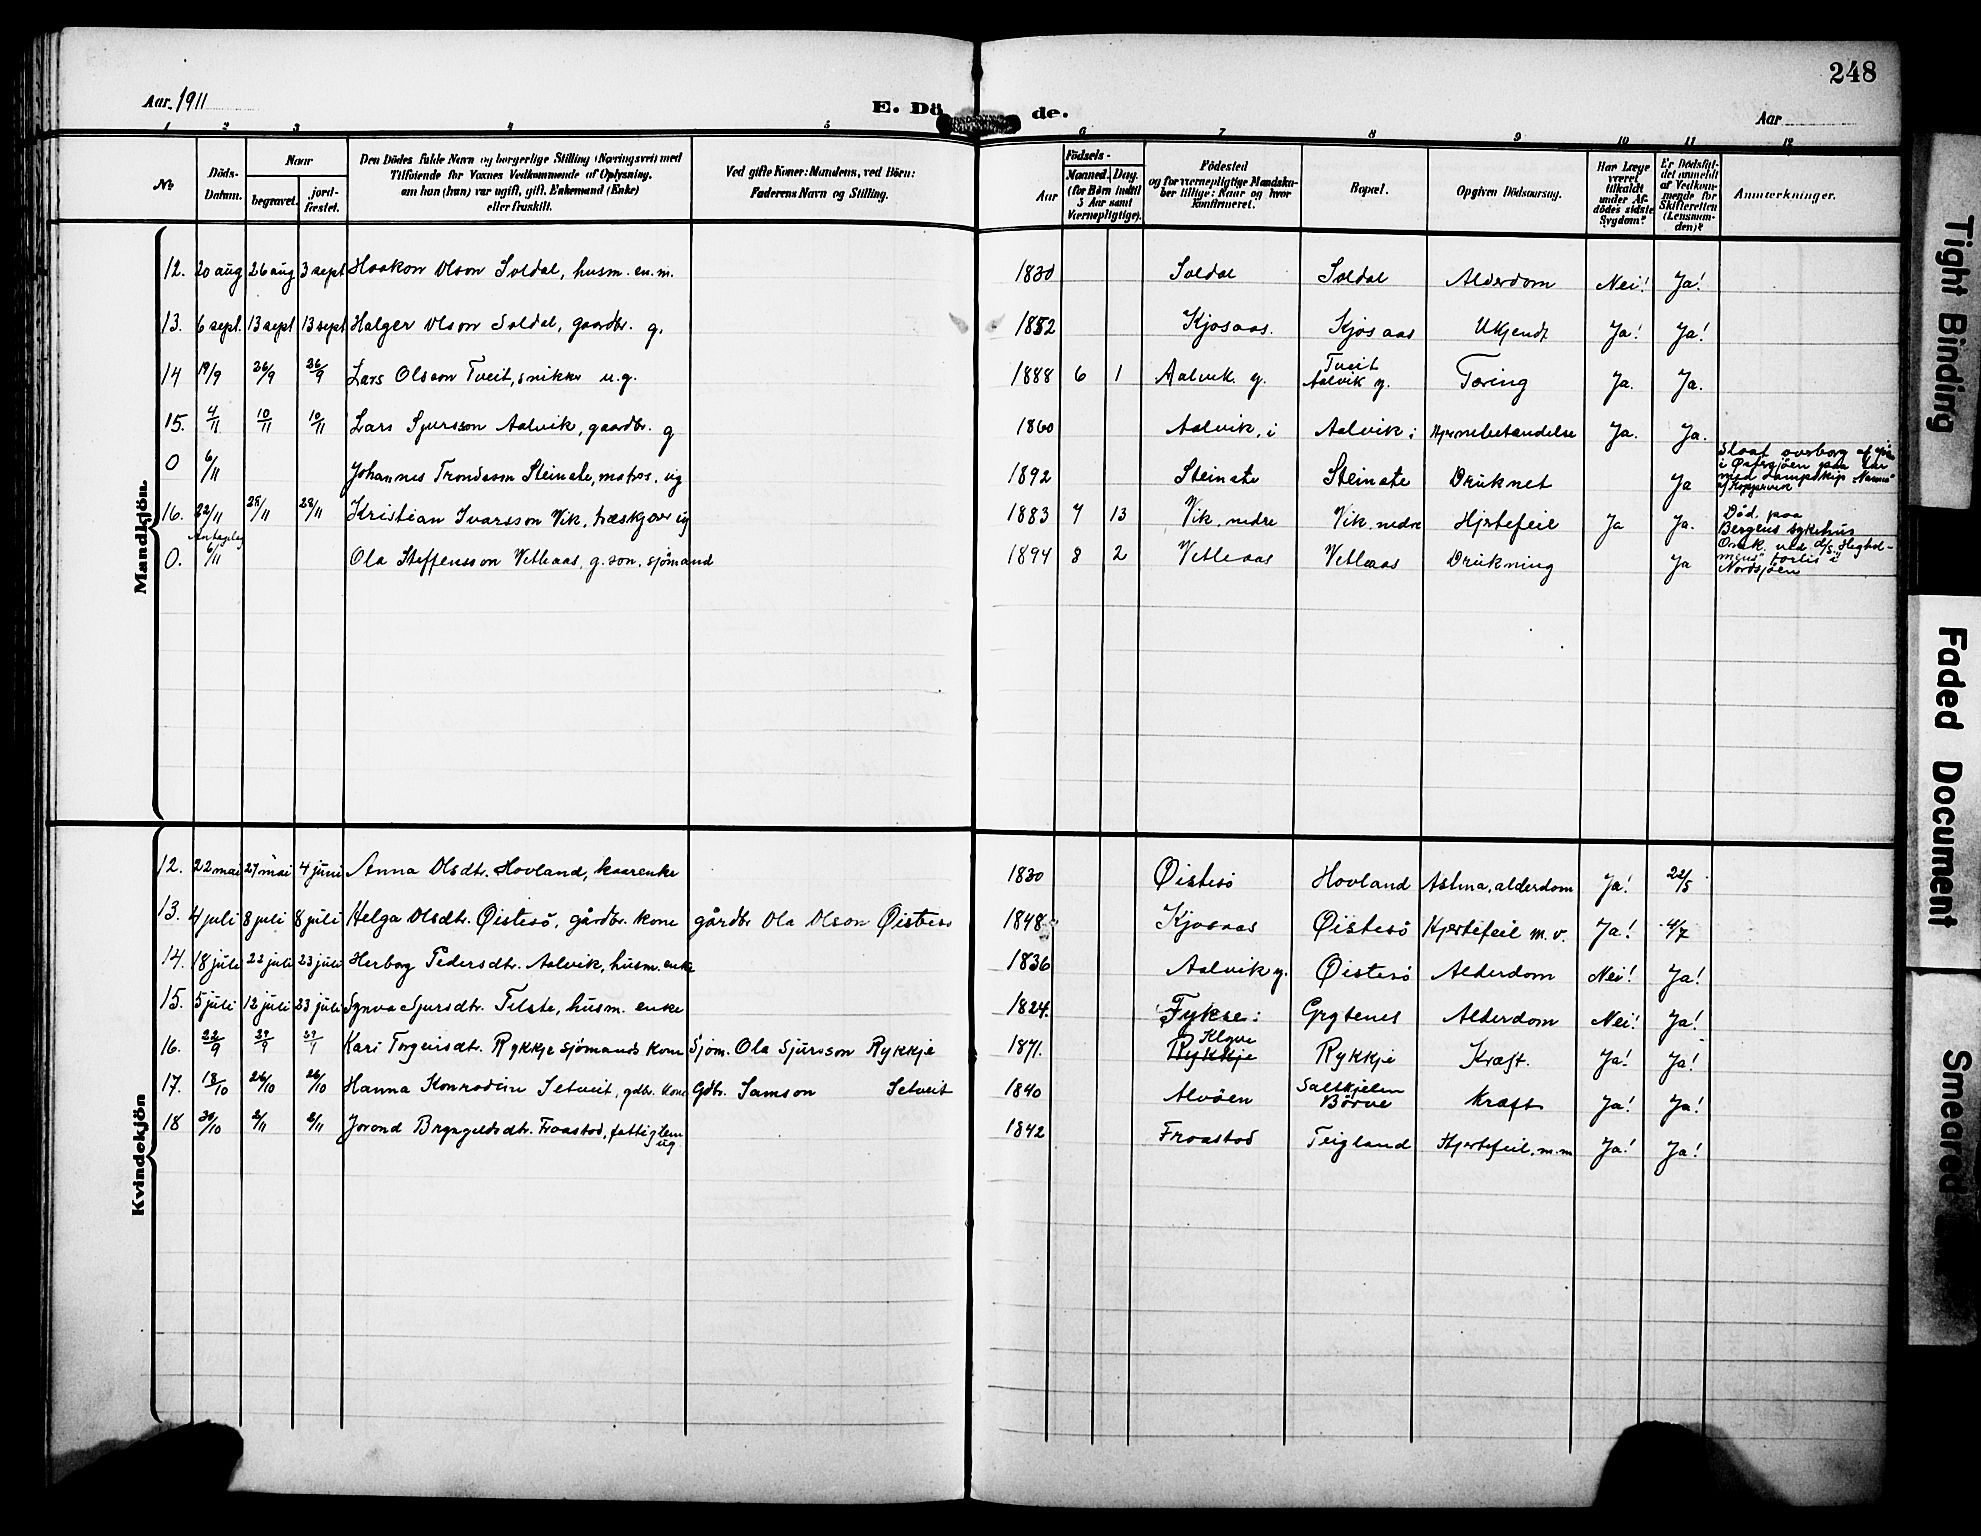 248
Aar 1911
E. Dö de.
Aar
1 2 3 4 5 6 7 8 9 10 11 12
No
Döds-Datum.
Naar
begravet.
jordfæstet.
Den Dödes fulde Navn og borgerlige Stilling (Næringsvei) med
Tilføiende for Voxnes Vedkommende af Oplysning,
om han (hun) var ugift, gift, Enkemand (Enke)
eller fraskilt.
Ved gifte Koner: Mandens, ved Börn:
Faderens Navn og Stilling.
Födsels-
Aar
Maaned. Dag.
(for Børn indtil
5 Aar samt
Værnepligtige).
Födested
og for værnepligtige Mandska-
ber tillige: Naar og hvor
konfirmeret.
Bopæl.
Opgiven Dödsaarsag.
Har Læge
været
tilkaldt
under Af-
dödes sidste
Sygdom?
Er Dödsfal-
det anmeldt
af Vedkom-
mende for
Skifteretten
(Lensman-
den)?
Anmærkninger.
Mandkjön.
12. 20 aug 26 aug 3 sept Haakon Olson Soldal, husm. en.m. 1830 Soldal Soldal Alderdom Nei! Ja!
13. 6 sept. 13 sept 13 sept Halger Olson Soldal, gaardbr. g. 1852 Kjosaas. Kjosaas Ukjendt Ja! Ja!
14 19/9 26/9 26/9 Lars Olsson Tveit, snikker u.g. 1888 6 1 Aalvik y. Tveit Aalvik y. Tæring Ja. Ja.
15. 4/11 10/11 10/11 Lars Sjursson Aalvik, gaardbr. g 1860 Aalvik, i Aalvik i Hjernebetændelse Ja. Ja.
0 6/11 Johannes Trondsson Steinstø, matros. ug 1892 Steinstø Steinstø Druknet Ja Slaat overborg af
i Østersjøen paa
med dampskip
af Kopervik
16. 22/11 28/11 28/11 Kristian Ivarsson Vik, træskjærer ug 1883 7 13 Vik, nedre Vik. nedre Hjertefeil Ja Ja. Død. paa
Bergens sykehus
0. Antagelig 6/11 Ola Steffensson Vetleaas, g. søn, sjømand 1894 8 2 Vetleaas Vetleaas Drukning Ja Omk. ved d/s
forlis i
Nordsjøen
Kvindekjön
12. 22 mai 27 mai 4 juni Anna Olsdtr. Hovland, kaarenke 1830 Øistesö Hovland Astma, alderdom Ja! 22/5
13. 4 juli 8 juli 8 juli Helga Olsdtr. Øistesö, gårdbr. kone gårdbr Ola Olson Øistesö 1848 Kjosaas Øistesö Hjertefeil m. v. Ja! 4/7
14. 18 juli 22 juli 23 juli Herborg Pedersdtr. Aalvik, husm. enke 1836 Aalvik y. Øistesö Alderdom Nei! Ja!
15. 5 juli 12 juli 23 juli Synva Sjursdtr. Telste, husm. enke 1824. Fykse: Grytenes Alderdom Nei! Ja!
16. 22/9 29/9 Kari Torgeirsdtr. Rykkje sjömands kone Sjöm. Ola Sjursson Rykkje 1871. Klyve Rykkje Rykkje Kræft. Ja! Ja!
17. 18/10 26/10 26/10 Hanna Konradin Setveit, gdbr. kone Gdbr. Samson Setveit 1840 Alvöen Saltkjelen Börve Kræft Ja! Ja!
18 30/10 2/11 2/11 Jorond Bryngeldsdtr. Fraastad, fattiglem ug 1842 Fraastad Teigland Hjertefeil, m. m Ja! Ja!
Tight Binding
Faded Document
Smeared